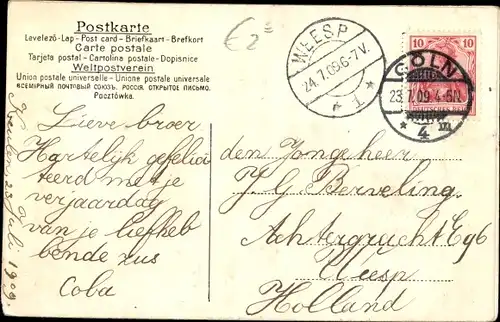 Postkarte
Levelező-Lap - Post card - Briefkaart - Brefkort
Carte postale
Tarjeta postal - Cartolina postale - Dopisnice
Weltpostverein
Union postale universelle - Unione postale universale
ВСЕМІРНЫЙ ПОЧТОВЫЙ СОЮЗЪ. РОССІЯ. ОТКРЫТОЕ ПИСЬМО.
Pocztówka.
€2
WEESP
24.7.09.6-7V.
* 1 *
10 10
CÖLN
23.7.09.4-5N.
DEUTSCHES REICH
* 4
23 Juli 1909.
Lieve broer
Hartelijk gefelici
teerd met je
verjaardag
van je liefheb
bende zus
Coba
den Jongeheer
J. G Berveling.
Achtergracht E 96
Weesp
Holland